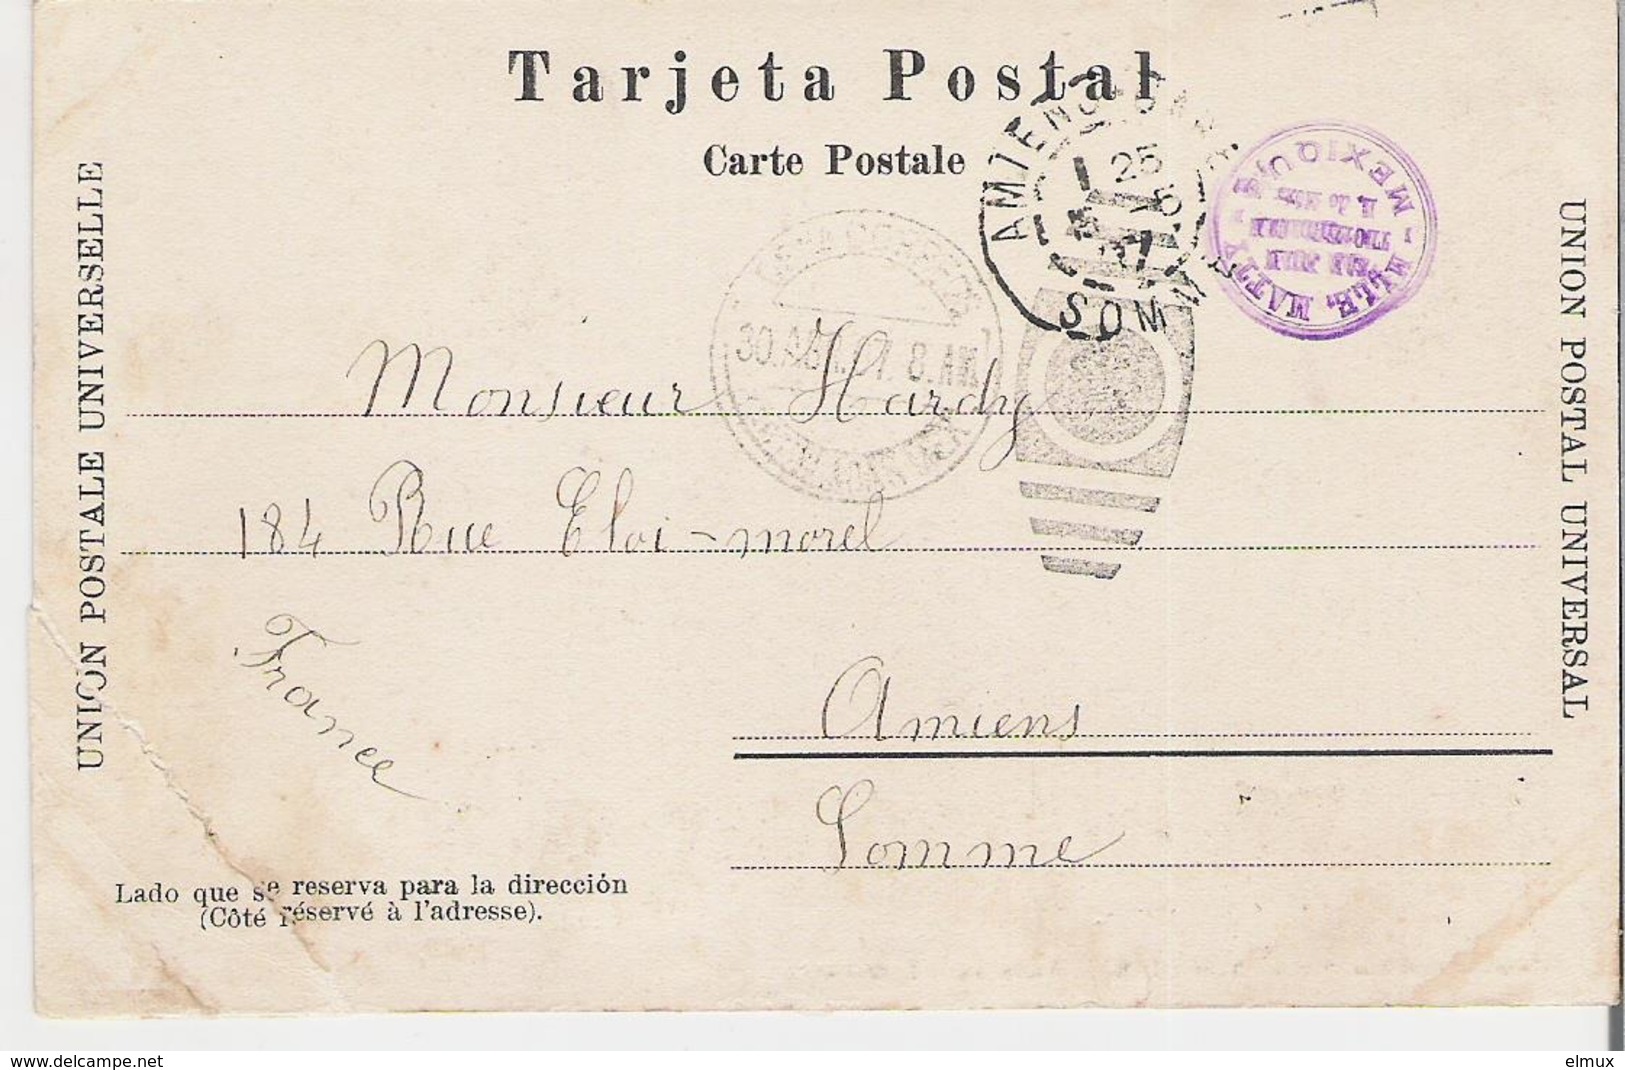 Tarjeta Postal
Carte Postale
UNION POSTALE UNIVERSELLE
UNION POSTAL UNIVERSAL
AMIENS
25
SOMME
30.ABR.07. 8.AM.
MLLE. MATTY
MEXIQUE
Monsieur Hardy
184 Rue Eloi-morel
France
Amiens
Somme
Lado que se reserva para la dirección
(Côté réservé à l'adresse).
www.delcampe.net
elmux